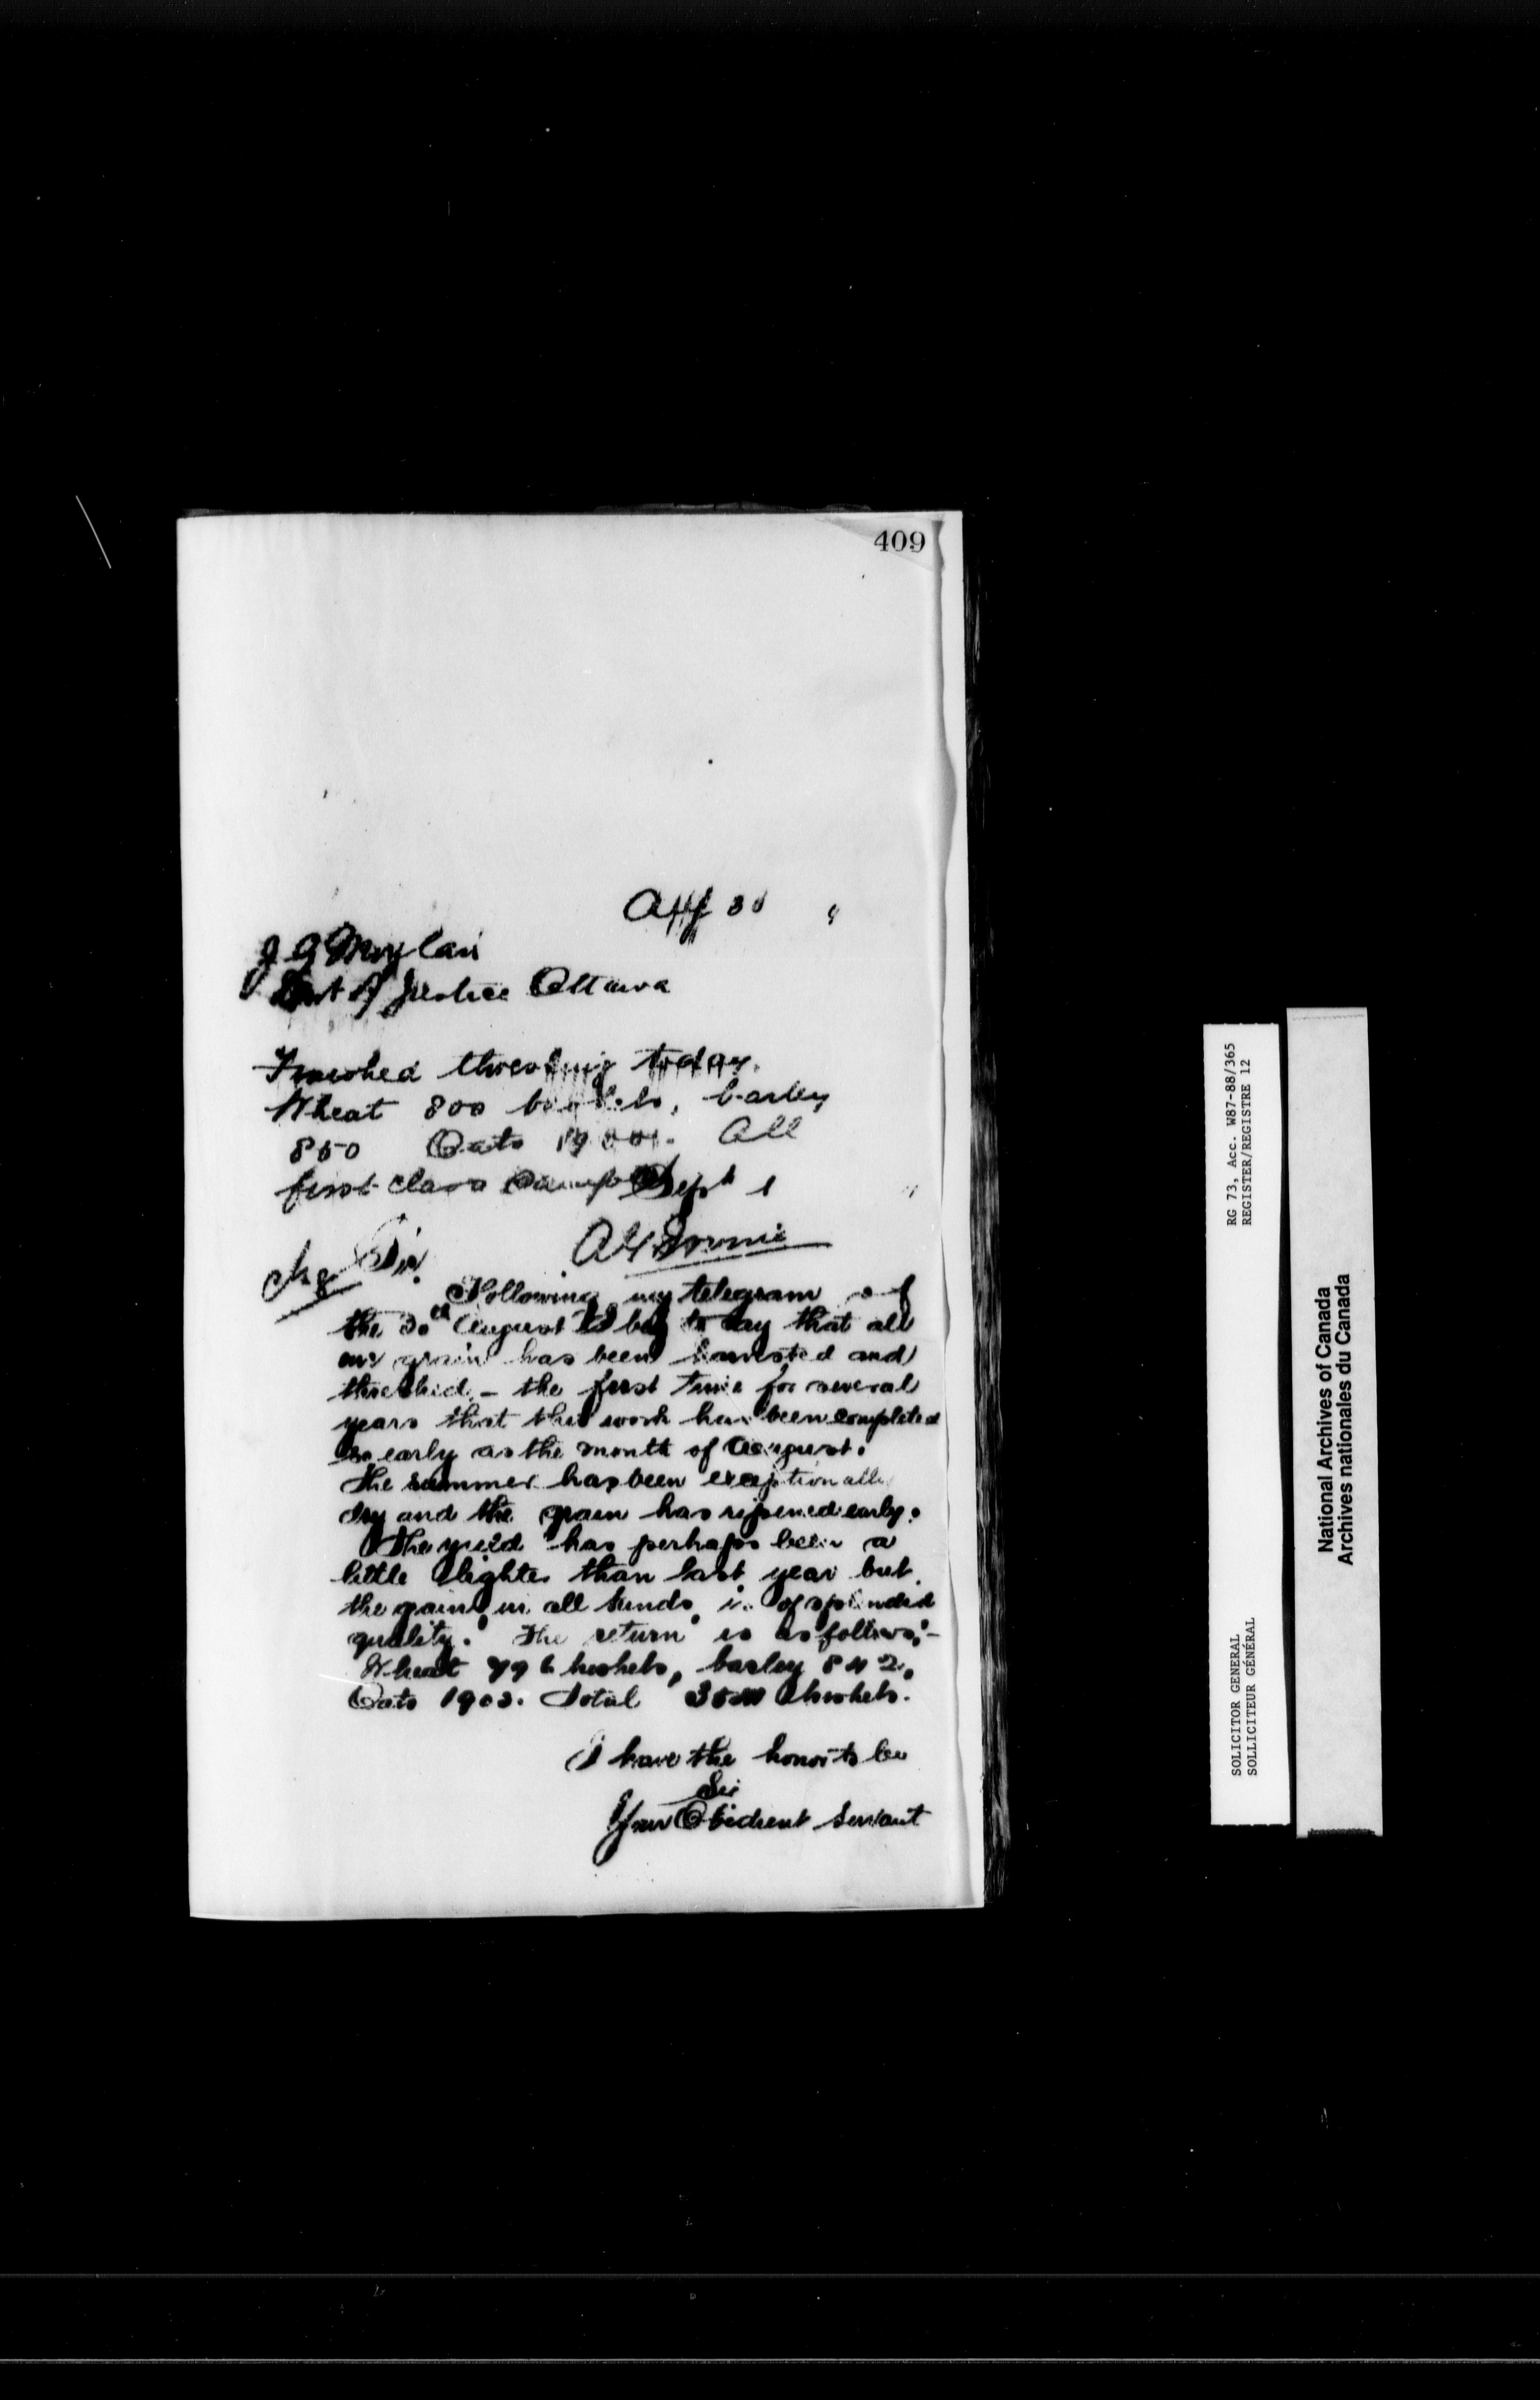 409
Aug 30
J G Moylan
Dept of Justice Ottawa
Finished threshing today.
Wheat 800 bushels, barley
850 Oats 1900. All
first class sample
Sept 1
A Irvine
Sir
Following my telegram of
the 30th August I beg to say that all
our grain has been harvested and
threshed, - the first time for several
years that this work has been completed
so early as the month of August.
The summer has been exceptionally
dry and the grain has ripened early.
The yield has perhaps been a
little lighter than last year but
the grain in all kinds is of splendid
quality. The return is as follows:-
Wheat 796 bushels, barley 842,
Oats 1903. Total bushels.
I have the honor to be
Sir
Your Obedient Servant
RG 73, Acc. W87-88/365
REGISTER/REGISTRE 12
SOLICITOR GENERAL
SOLLICITEUR GÉNÉRAL
National Archives of Canada
Archives nationales du Canada